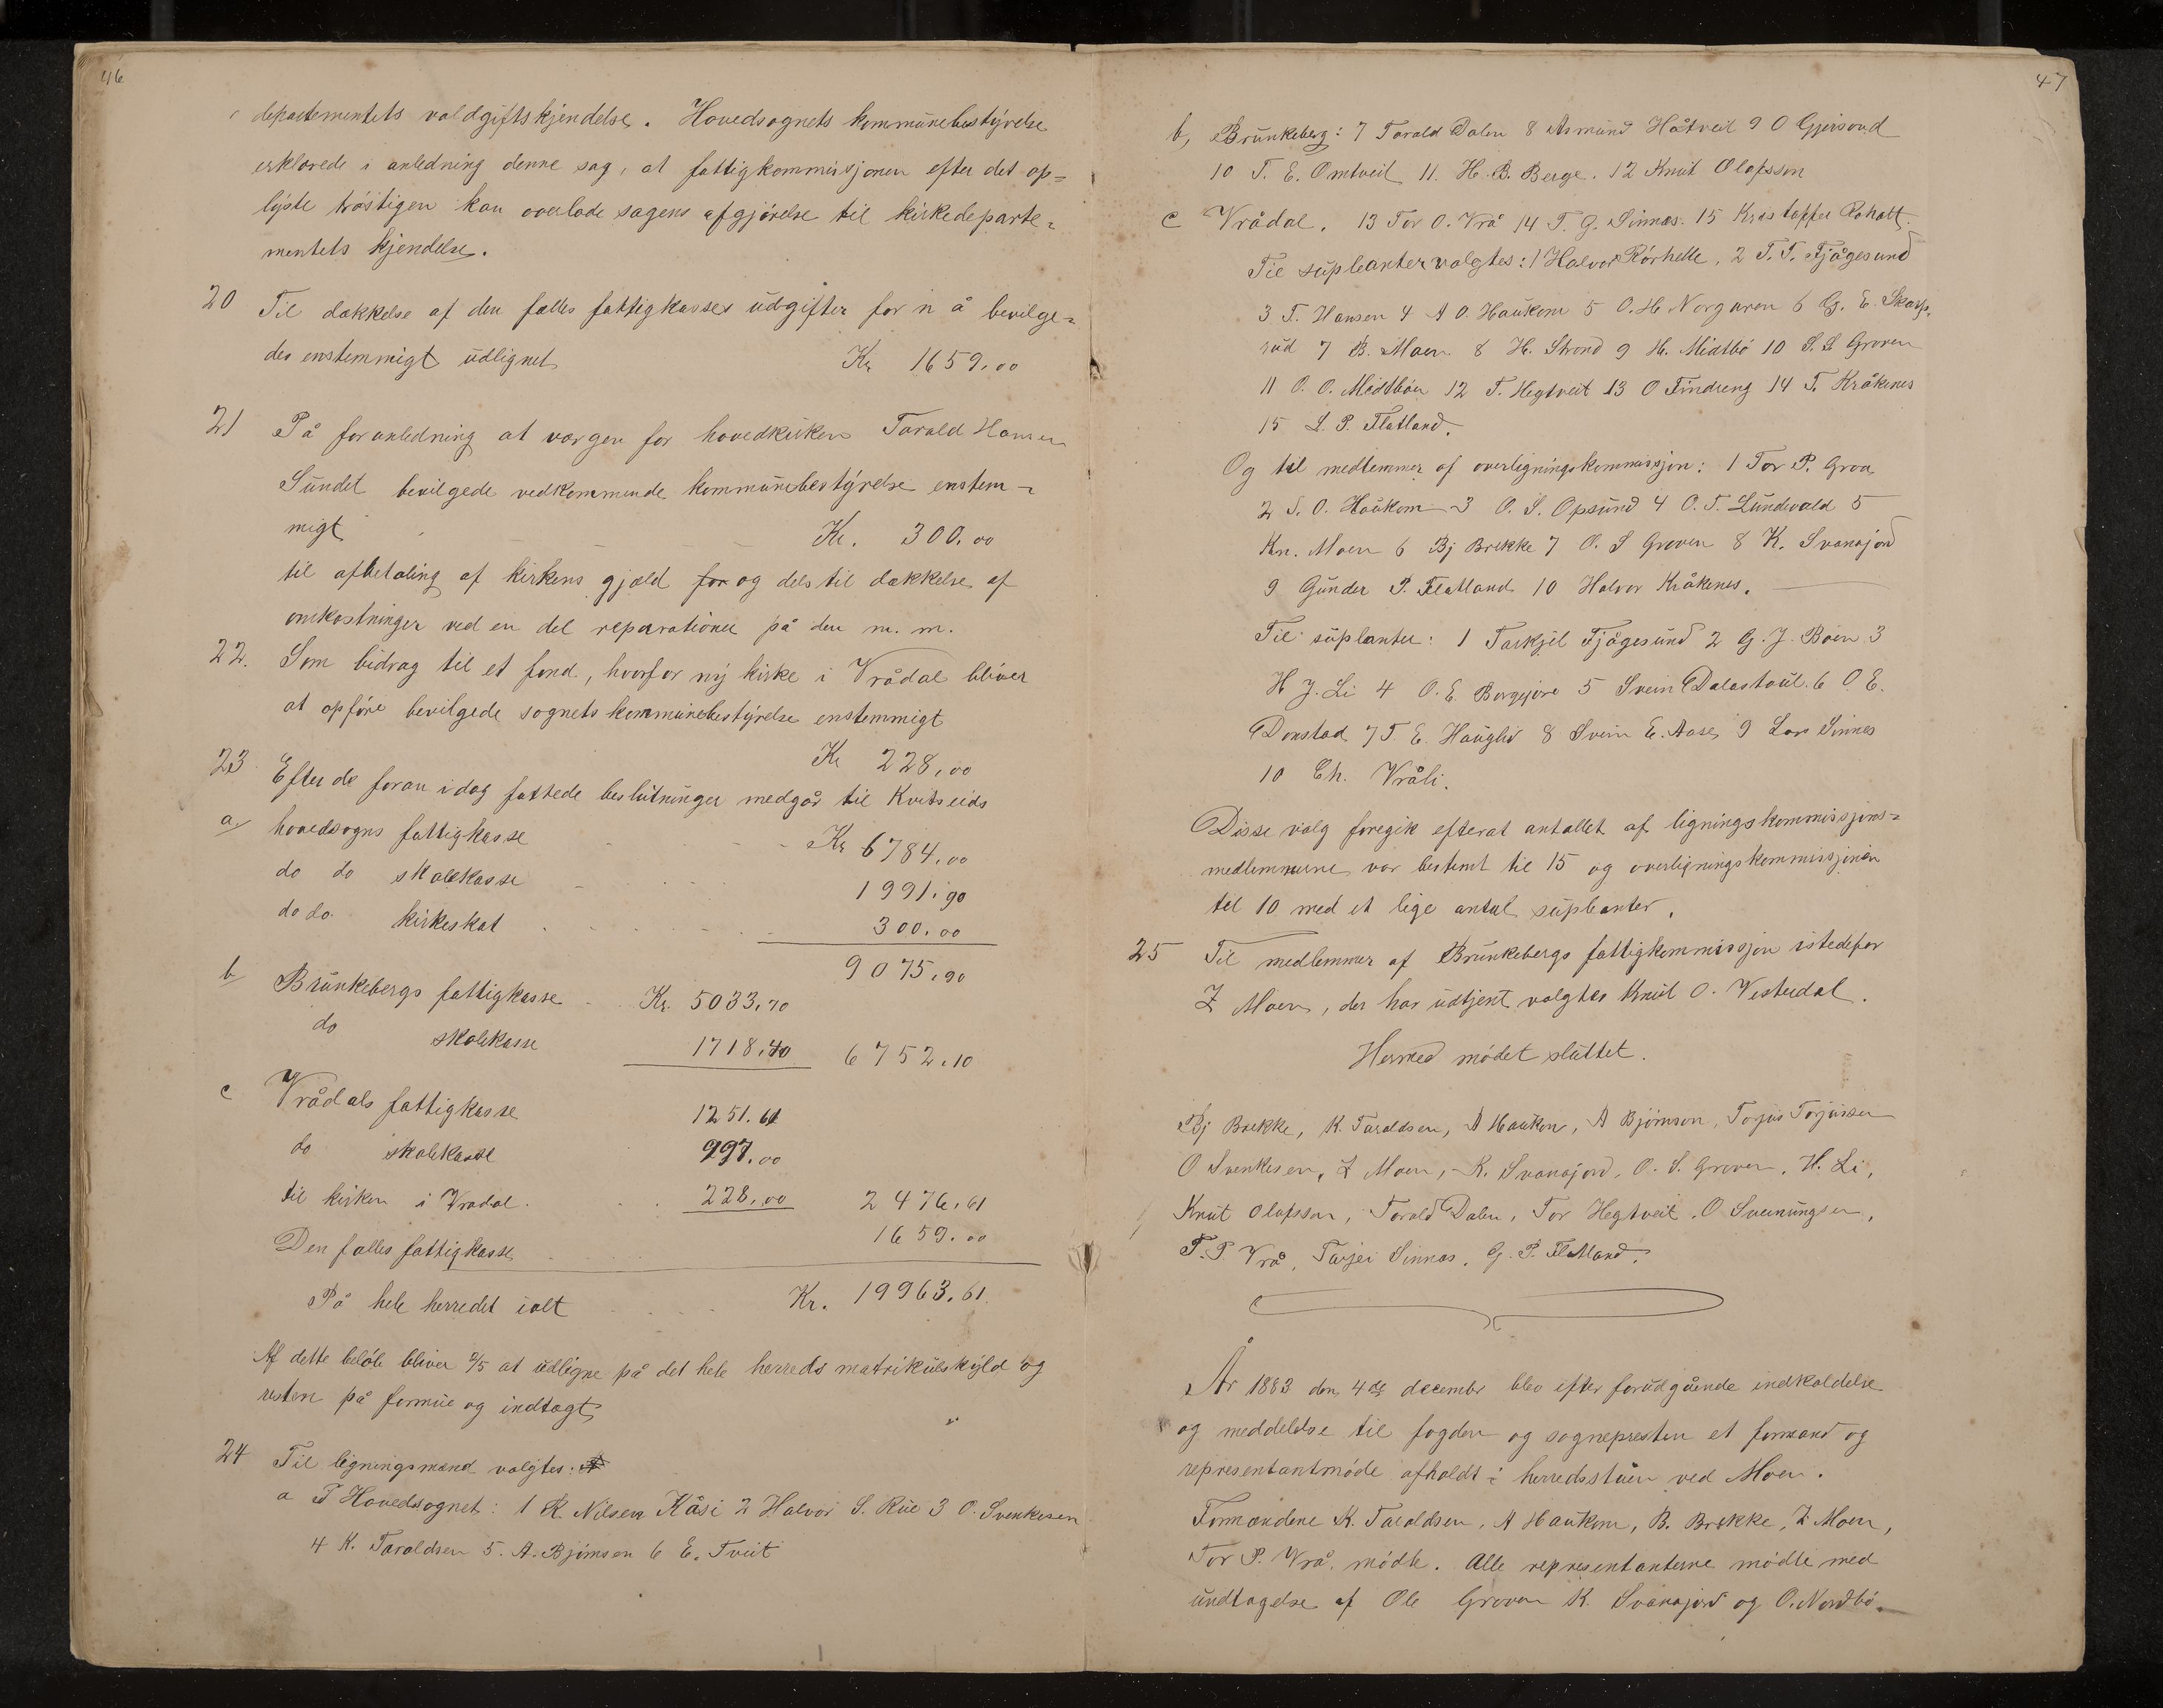 46
departementets voldgiftskjendelse. Hovedsognets kommunebestyrelse
erklærede i anledning denne sag, at fattigkommissjonen efter det op=
lyste trøstigen kan overlade sagens afgjørelse til kirkedeparte=
mentets kjendelse.
20 Til dækkelse af den fælles fattigkasses udgifter for n å bevilge=
des enstemmigt udlignet Kr 1659,00
21 På foranledning at værgen for hovedkirken Tarald Hansen
Sundet bevilgede vedkommende kommunebestyrelse enstem=
migt Kr. 300,00
til afbetaling af kirkens gjæld for og dels til dækkelse af
omkostninger ved en del reparationer på den m. m.
22. Som bidrag til et fond, hvorfor ny kirke i Vrådal bliver
at opføre bevilgede sognets kommunebestyrelse enstemmigt
Kr 228,00
23 Efter de foran idag fattede beslutninger medgår til Kvitseids
a, hovedsogns fattigkasse Kr 6784,00
do do skolekasse 1991,90
do do kirkeskat 300,00
9075,90
b Brunkebergs fattigkasse Kr. 5033,70
do skolekasse 1718,40 6752,10
c Vrådals fattigkasse 1251.61
do skolekasse 997,00
til kirken i Vradal 228,00 2476,61
Den fælles fattigkasse 1659,00
På hele herredet ialt Kr. 19963,61
Af dette beløb bliver 2/5 at udligne på det hele herreds matrikulskyld og
resten på formue og indtægt
24 Til ligningsmænd valgtes:
a I Hovedsognet: 1 K. Nilsen Kåsi 2 Halvor S. Rue 3 O. Svenkesen
4 K. Taraldsen 5. A. Bjørnsen 6 E. Tveit
47
b, Brunkeberg: 7 Tarald Dalen 8 Asmund Håtveit 9 O Gjersund
10 T. E. Omtveit 11. H. B. Berge. 12 Knut Olafsson
c Vrådal. 13 Tor O. Vrå 14 T. G. Sinnes. 15 Kristoffer Roholt.
Til supleanter valgtes: 1 Halvor Rørhelle, 2 T. T. Fjågesund
3 T. Hansen 4 A O. Haukom 5 O. H Norgaren 6 G. E. Skarp,
rud 7 B. Moen 8 H. Strond 9 H. Midtbø 10 S. S Groven
11 O. O. Midtbøen 12 T. Hegtveit 13 O Findreng 14 T. Kråkenes
15 S. P. Flatland.
Og til medlemmer af overligningskommissjon: 1 Tor P. Groa
2 S. O. Haukom 3 O. S. Opsund 4 O. T. Lundevald 5
Kn. Moen 6 Bj Brekke 7 O. S Groven 8 K. Svanajord
9 Gunder P. Flatland 10 Halvor Kråkenes.
Til suplanter: 1 Tarkjel Fjågesund 2 G. J. Boen 3
H J. Li 4 O. E. Borgejore 5 Svein Dalastøul. 6 O E.
Donstad 7 T. E. Hauglid 8 Svein E. Aase, 9 Lars Sinnes
10 Ch. Vråli.
Disse valg foregik efterat antallet af ligningskommissjons=
medlemmerne var bestemt til 15 og overligningskommissjonen
til 10 med et lige antal supleanter.
25 Til medlemmer af Brunkebergs fattigkommissjon istedefor
Z Moen, der har udtjent valgtes Knut O. Vesterdal.
Hermed mødet sluttet.
Bj Brekke, K. Taraldsen, A Haukom, A Bjørnson, Torjus Torjussen
O Svenkesen, Z Moen, K. Svanajord, O. S. Groven, H. Li,
Knut Olafsson, Tarald Dalen, Tor Hegtveit, O Sveinungsen,
T. P. Vrå, Tarjei Sinnes, G. P. Flatland.
År 1883 den 4de decembr blev efter forudgående indkaldelse
og meddelelse til fogden og sognepresten et formand og
representantmøde afholdt i herredsstuen ved Moen.
Formændene K. Taraldsen, A Haukom, B. Brekke, Z. Moen,
Tor P. Vrå, mødte. Alle representanterne mødte med
undtagelse af Ole Groven K. Svanajord og O. Nordbø.